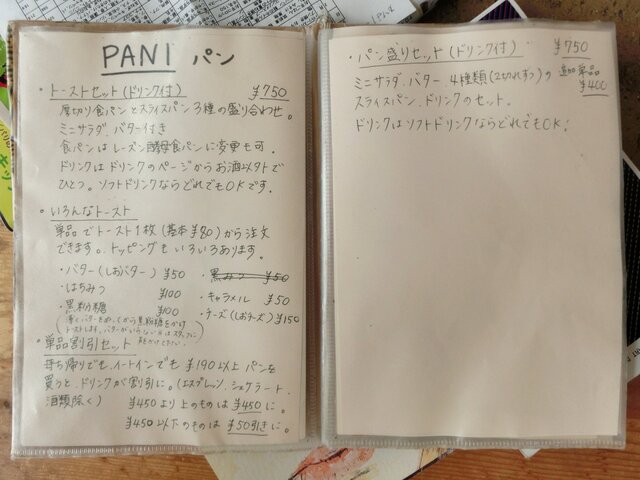 PANI パン
・トーストセット(ドリンク付) ¥750
厚切り食パンとスライスパン3種の盛り合わせ。
ミニサラダ、バター付き
食パンはレーズン酵母食パンに変更も可。
ドリンクはドリンクのページからお酒以外で
ひとつ。ソフトドリンクならどれでもOKです。
・いろんなトースト
単品でトースト1枚(基本¥80)から注文
できます。トッピングもいろいろあります。
・バター(しおバター) ¥50
・はちみつ ¥100
・黒粉糖 ¥100
・黒みつ ¥50
・キャラメル ¥50
・チーズ(しおチーズ) ¥150
・単品割引セット
持ち帰りでも、イートインでも ¥190以上 パンを
買うと、ドリンクが割引に。(エスプレッソ、シェケラート、
酒類除く) ¥450より上のものは¥450に。
¥450以下のものは¥50引きに。
・パン盛りセット(ドリンク付) ¥750
ミニサラダ、バター、4種類(2切れずつ)の
追加単品
¥400
スライスパン、ドリンクのセット。
ドリンクはソフトドリンクならどれでもOK!